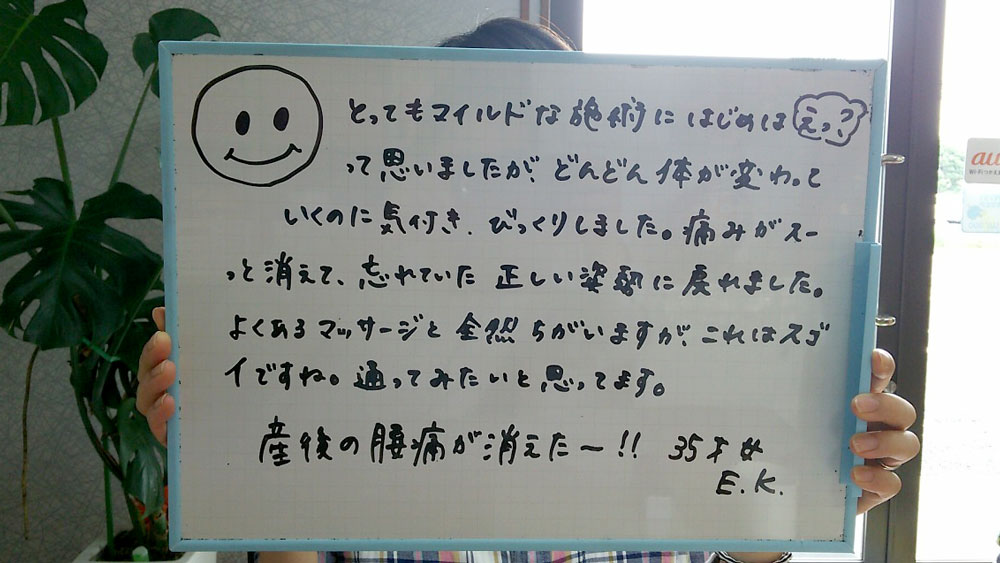 とってもマイルドな施術にはじめはえっ?
って思いましたが、どんどん体が変わって
いくのに気付き、びっくりしました。痛みがスー
っと消えて、忘れていた正しい姿勢に戻れました。
よくあるマッサージと全然ちがいますが、これはスゴ
イですね。通ってみたいと思ってます。
産後の腰痛が消えた〜!! 35才女
E.K.
au